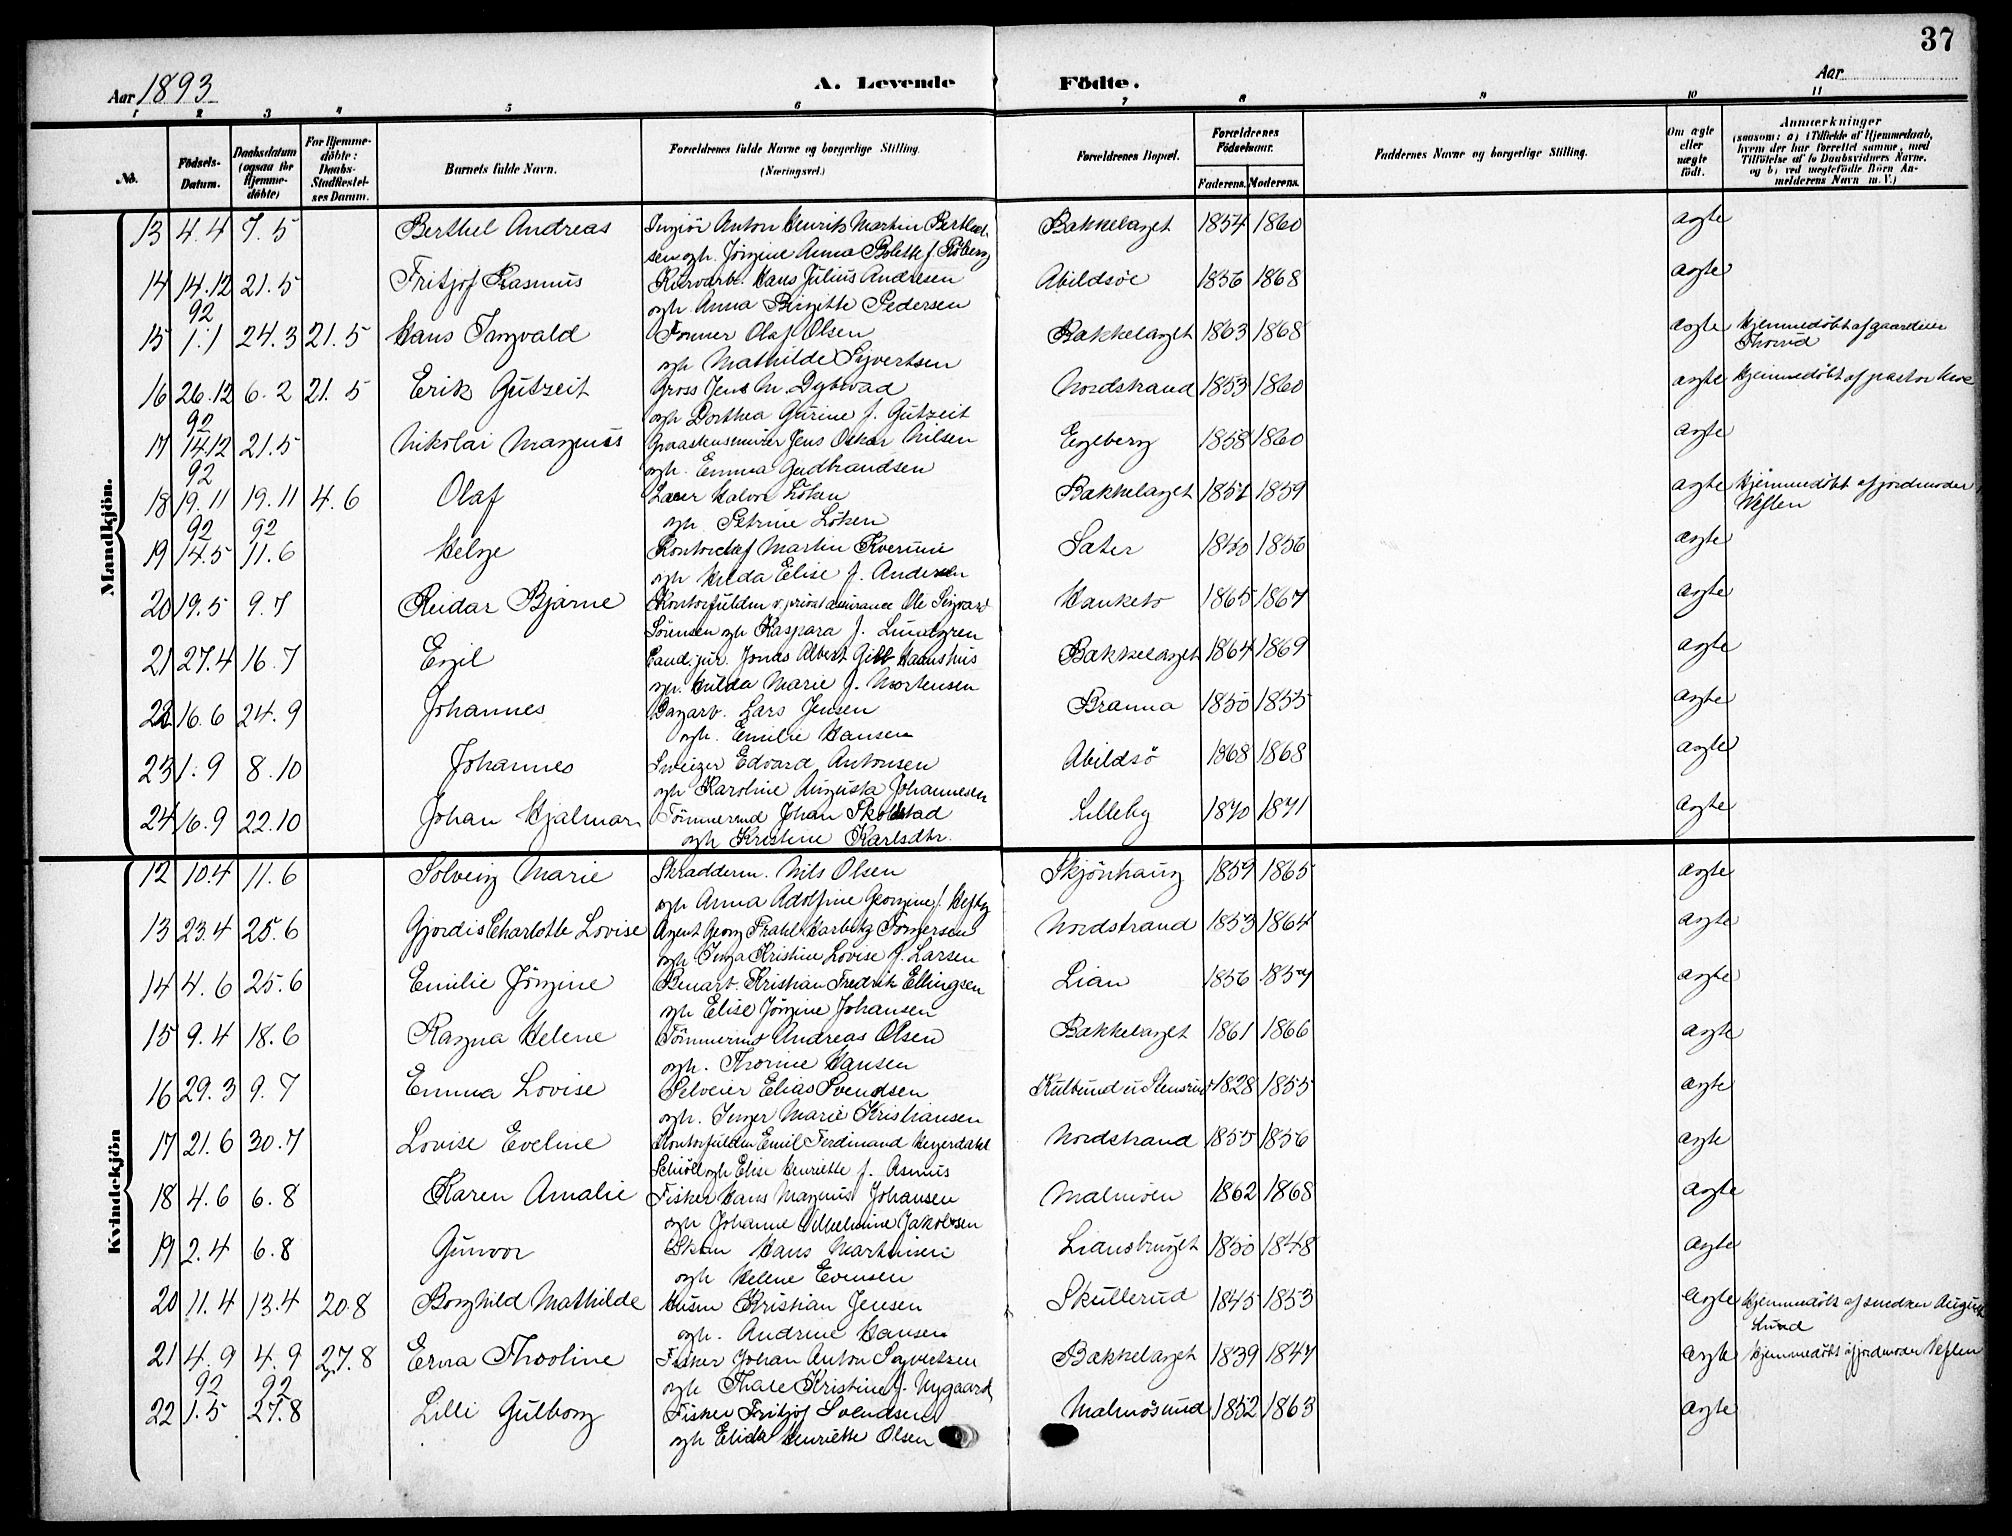 37
Aar 1893
A. Levende Födte.
Aar
1 2 3 4 5 6 7 8 9 10 11
No.
Födsels-Datum.
Daabsdatum (ogsaa for Hjemme-döbte)
For Hjemme-döbte: Daabs-Stadfæstel-ses Datum.
Barnets fulde Navn.
Forældrenes fulde Navne og borgerlige Stilling. (Næringsvei.)
Forældrenes Bopæl.
Forældrenes Födselsaar.
Faderens. Moderens.
Faddernes Navne og borgerlige Stilling.
Om ægte eller uægte födt.
Anmærkninger
(saasom: a) i Tilfælde af Hjemmedaab, hvem der har forrettet samme, med Tilföielse af to Daabsvidners Navne. og b) ved uegtefödte Börn Anmelderens Navn m. V.)
Mandkjön.
13 4.4 7.5 Berthel Andreas Anton Henrik Martin Berthel- Bakkelaget 1854 1860 ægte
sen ogh. Jörgine Anna Bolette f.
14 14.12 21.5 Fritjof Rasmus Hans Julius Andresen Abildsöe 1856 1868 ægte
92 ogh Anna Birgitte Pedersen
15 1.1 24.3 21.5 Hans Ingvald Olaf Olsen Bakkelaget 1863 1868 ægte Hjemmedöbt af gaardeier
ogh Mathilde Syvertsen Thorud
16 26.12 6.2 21.5 Erik Gutzeit Gross Jens M. Dybwad Nordstrand 1853 1860 ægte Hjemmedöbt af pastor
92 ogh Dorthea Gurine f. Gutzeit
17 14.12 21.5 Nikolai Magnus Graastensmurer Jens Oskar Nilsen Egeberg 1858 1860 ægte
92 ogh. Emma Gudbrandsen
18 19.11 19.11 4.6 Olaf Halvor Löken Bakkelaget 1851 1859 ægte Hjemmedöbt af jordmoder
92 92 ogh Petrine Löken Veflen
19 14.5 11.6 Helge Kontorchef Martin Sæter 1856 ægte
ogh Hilda Elise f. Andersen
20 19.5 9.7 Reidar Bjarne Kontorfuldm. v. privat assurance Ole Sigvard Hauketo 1865 1867 ægte
Sörensen ogh Kaspara f. Lundgren
21 27.4 16.7 Egil Cand. jur. Jonas Albert Bakkelaget 1864 1869 ægte
ogh. Hilda Marie f. Mortensen
22 16.6 24.9 Johannes Lars Jensen Branna 1850 1855 ægte
ogh. Emilie Hansen
23 1.9 8.10 Johannes Sveizer Edvard Antonsen Abildsö 1868 1868 ægte
ogh Karoline Augusta Johannesen
24 16.9 22.10 Johan Hjalmar Tömmermd Johan Lilleby 1870 1871 ægte
ogh Kristine Karlsdtr.
Kvindekjön
12 10.4 11.6 Solveig Marie Skrædderm. Nils Olsen Skjönhaug 1859 1865 ægte
ogh Anna Adolfine Georgine f. Hefty
13 23.4 25.6 Gjordis Charlotte Lovise Agent Georg Nordstrand 1853 1864 ægte
ogh Inga Kristine Lovise f. Larsen
14 4.6 25.6 Emilie Jörgine Kristian Fredrik Ellingsen Lian 1856 1857 ægte
ogh Elise Jörgine Johansen
15 9.4 18.6 Ragna Helene Tömmermd Andreas Olsen Bakkelaget 1861 1866 ægte
ogh. Thorine Hansen
16 29.3 9.7 Emma Lovise Selveier Elias Svendsen Kulbund u. Stensrud 1828 1855 ægte
ogh. Inger Marie Kristiansen
17 21.6 30.7 Lovise Eveline Kontorfuldm Emil Ferdinand Heyerdahl Nordstrand 1855 1856 ægte
Schiöll ogh Elise Henriette f. Asmus
18 4.6 6.8 Karen Amalie Fisker Hans Magnus Johansen Malmöen 1862 1868 ægte
ogh Johanne Vilhelmine Jakobsen
19 2.4 6.8 Gunvor Hans Martinsen Liansbruget 1850 1848 ægte
ogh Helene Evensen
20 11.4 13.4 20.8 Borghild Mathilde Husm Kristian Jensen Skullerud 1845 1853 ægte Hjemmedöbt af snedker August
ogh. Andrine Hansen Lund
21 4.9 4.9 27.8 Erna Thooline Fisker Johan Anton Syvertsen Bakkelaget 1839 1847 ægte Hjemmedöbt af jordmoder Veflen
92 92 ogh Thale Kristine f. Nygaard
22 1.5 27.8 Lilli Gulborg Fisker Fritjof Svendsen Malmösund 1852 1863 ægte
ogh Elida Henriette Olsen